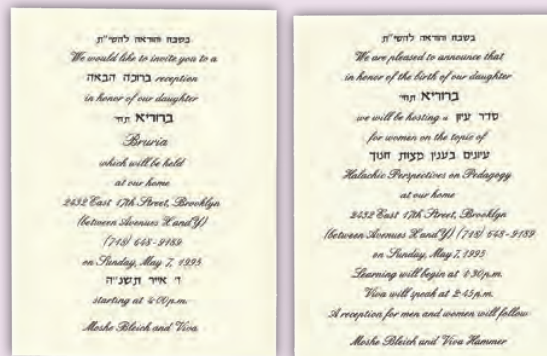 בשבח והוראה להשי"ת
We would like to invite you to a
ברוכה הבאה reception
in honor of our daughter
ברוריא תחי'
Bruria
which will be held
at our home
2432 East 17th Street, Brooklyn
(between Avenues X and Y)
(718) 648-9189
on Sunday, May 7, 1995
ז' אייר תשנ"ה
starting at 4:00 p.m.
Moshe Bleich and Viva
בשבח והוראה להשי"ת
We are pleased to announce that
in honor of the birth of our daughter
ברוריא תחי'
we will be hosting a סדר עיון
for women on the topic of
עיונים בענין מצות חנוך
Halachic Perspectives on Pedagogy
at our home
2432 East 17th Street, Brooklyn
(between Avenues X and Y) (718) 648-9189
on Sunday, May 7, 1995
Learning will begin at 1:30 p.m.
Viva will speak at 2:45 p.m.
A reception for men and women will follow
Moshe Bleich and Viva Hammer